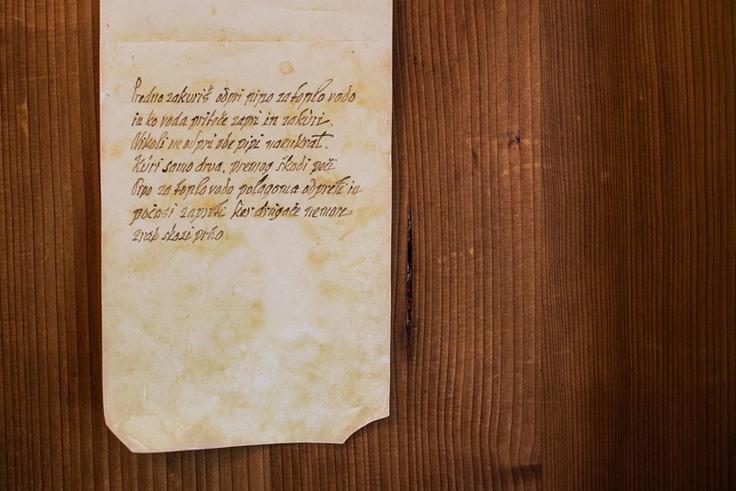 Predno zakuriš odpri pipo za toplo vodo
in ko voda priteče zapri in zakuri.
Nikoli ne odpri obe pipi naenkrat.
Kuri samo drva, premog škodi peči
Pipo za toplo vodo polagoma odpreti in
počasi zapreti ker drugače nemore
zrak skozi prho